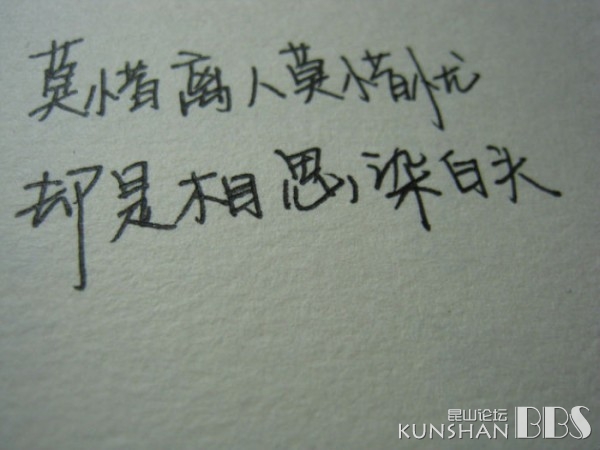 莫惜离人莫惜忧
却是相思染白头
昆山论坛
KUNSHAN BBS